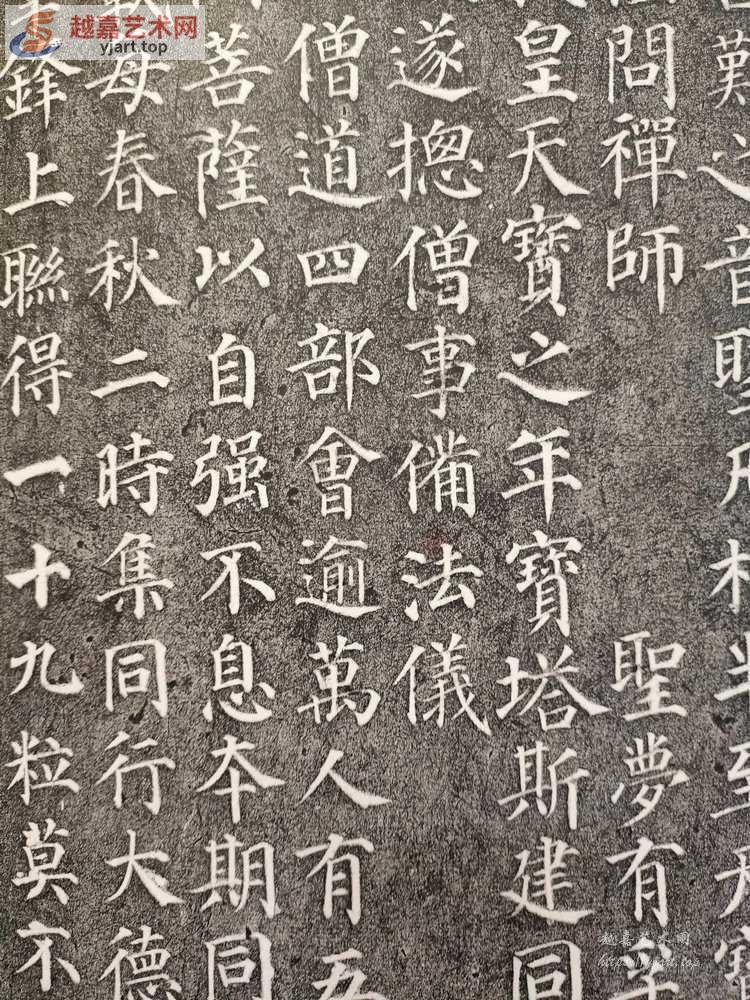 越嘉艺术网
yjart.top
難之音聖凡相半至
問禪師 聖夢有孚
皇天寶之年寶塔斯建同
遂揔僧事備法儀
僧道四部會逾萬人有五
菩薩以自强不息夲期同
每春秋二時集同行大德
鋒上聯得一十九粒莫不
越嘉艺术网